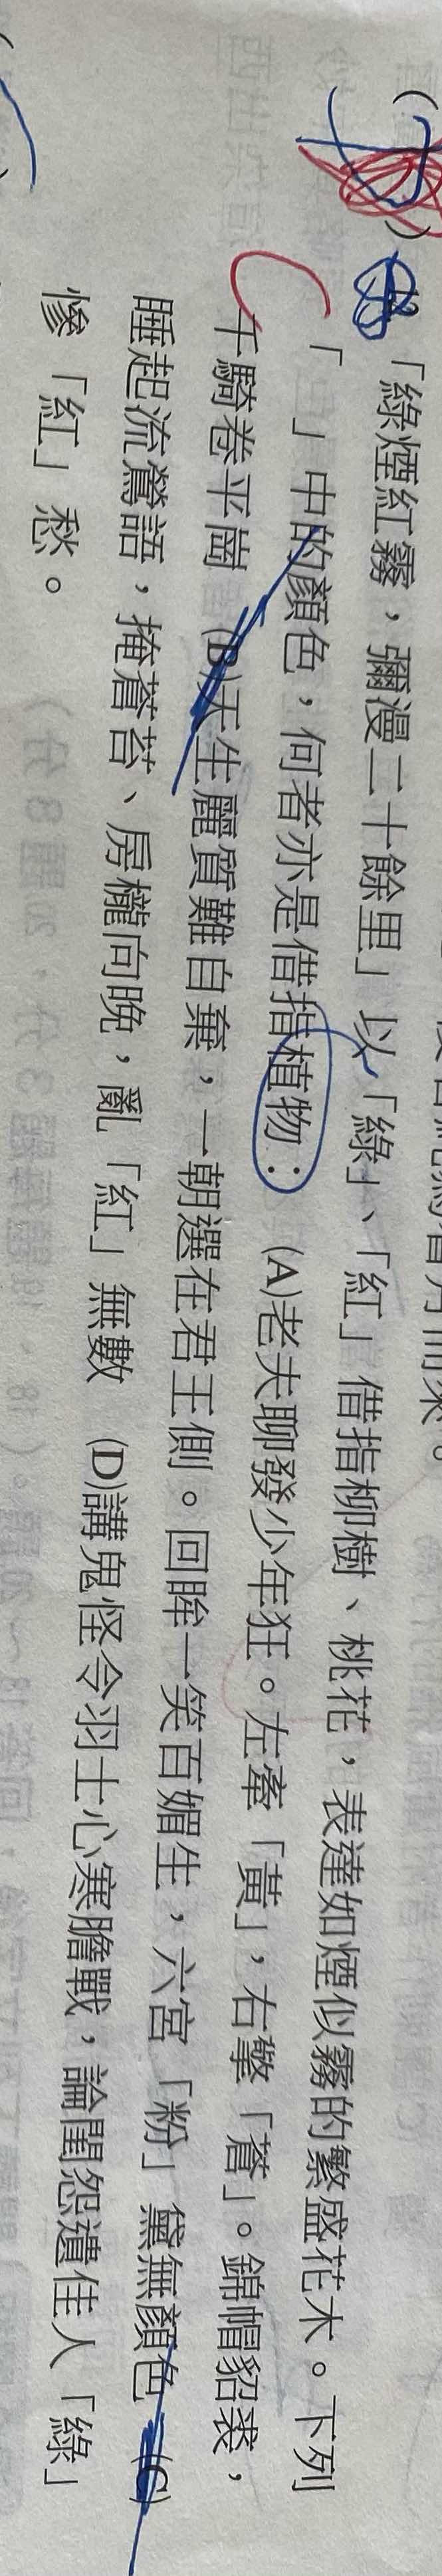 「綠煙紅霧，彌漫二十餘里」以「綠」、「紅」借指柳樹、桃花，表達如煙似霧的繁盛花木。下列
「　」中的顏色，何者亦是借指植物：　(A)老夫聊發少年狂。左牽「黃」，右擎「蒼」。錦帽貂裘，
千騎卷平崗　(B)天生麗質難自棄，一朝選在君王側。回眸一笑百媚生，六宮「粉」黛無顏色　(C)
睡起流鶯語，掩蒼苔、房櫳向晚，亂「紅」無數　(D)講鬼怪令羽士心寒膽戰，論閨怨遺佳人「綠」
慘「紅」愁。